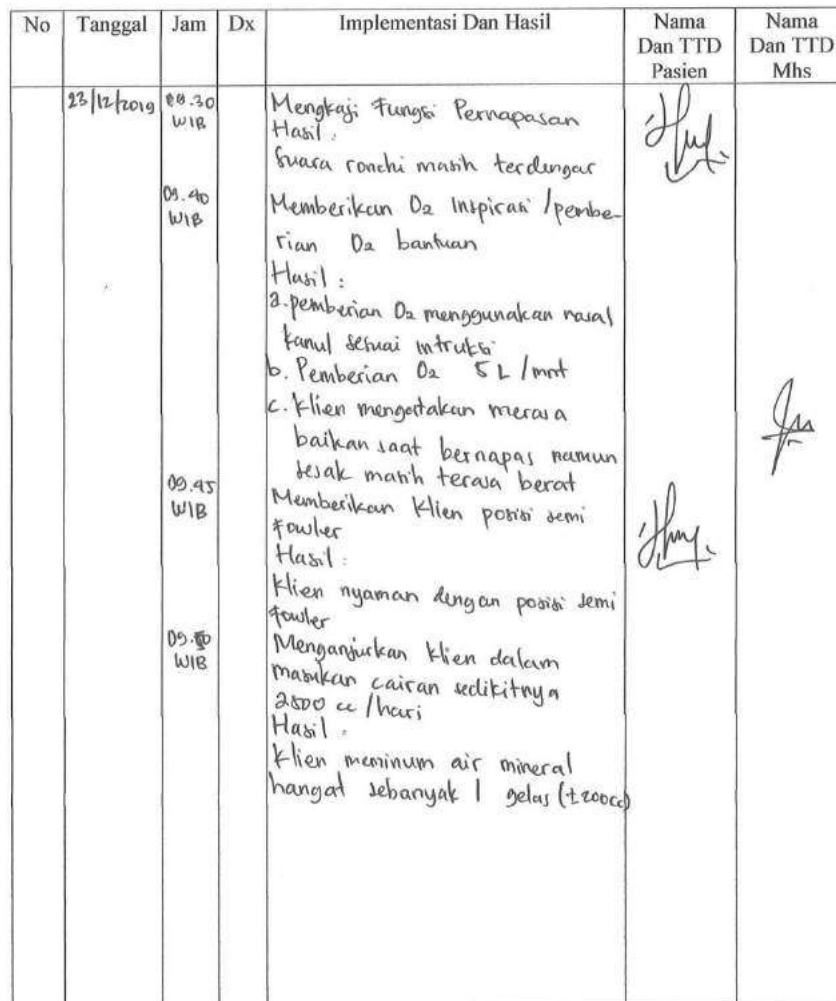 No Tanggal Jam Dx Implementasi Dan Hasil Nama Dan TTD Pasien Nama Dan TTD Mhs
23/12/2019 09.30 WIB Mengkaji Fungsi Pernapasan
Hasil :
Suara ronchi masih terdengar
09.40 WIB Memberikan O2 Inspirasi / pembe-
rian O2 bantuan
Hasil :
a. pemberian O2 menggunakan nasal
kanul sesuai intruksi
b. Pemberian O2 5 L / mnt
c. Klien mengatakan merasa
baikan saat bernapas namun
sesak masih terasa berat
09.45 WIB Memberikan klien posisi semi
fowler
Hasil :
Klien nyaman dengan posisi semi
fowler
WIB Menganjurkan klien dalam
masukan cairan sedikitnya
2500 cc / hari
Hasil :
Klien meminum air mineral
hangat sebanyak 1 gelas (±200cc)